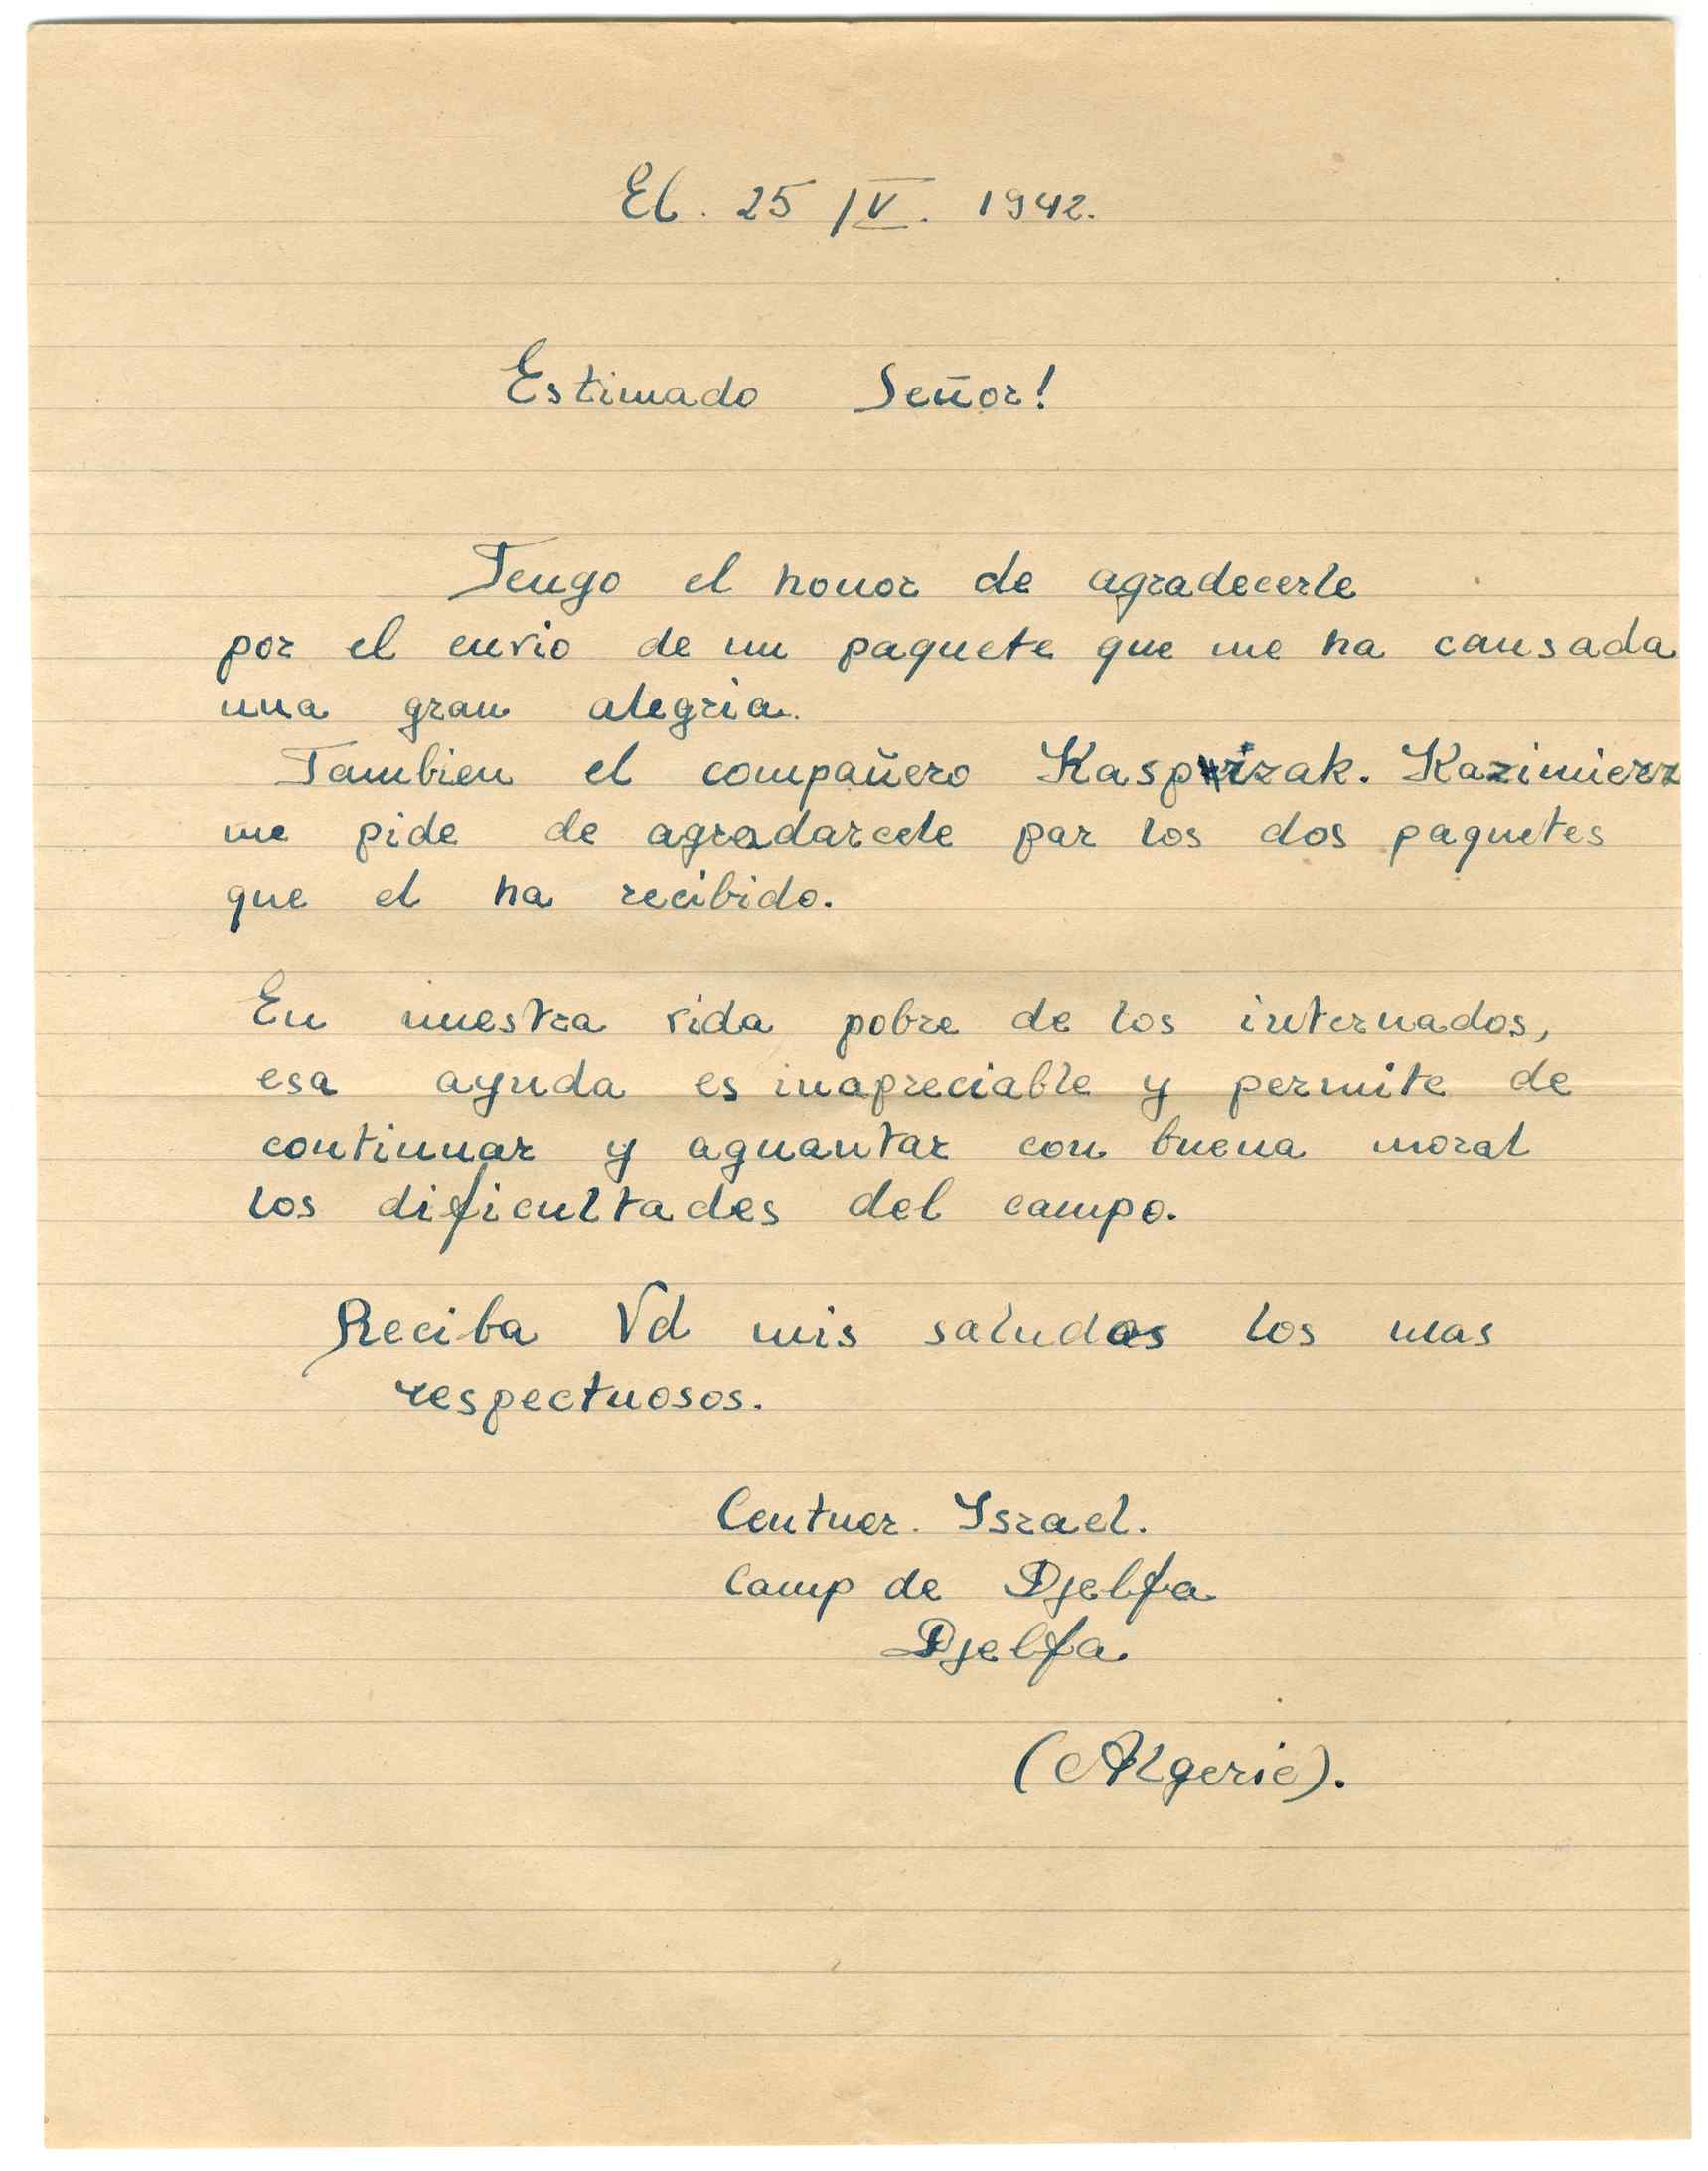 El. 25 / V. 1942.
Estimado Señor!
Tengo el honor de agradecerle
por el envio de un paquete que me ha causada
una gran alegria.
Tambien el compañero Kasprizak. Kazimierz
me pide de agradarcele par los dos paquetes
que el ha recibido.
En nuestra vida pobre de los internados,
esa ayuda es inapreciable y permite de
continuar y aguantar con buena moral
los dificultades del campo.
Reciba Vd mis saludos los mas
respectuosos.
Centner. Israel.
Camp de Djelfa
Djelfa.
(Algerie).